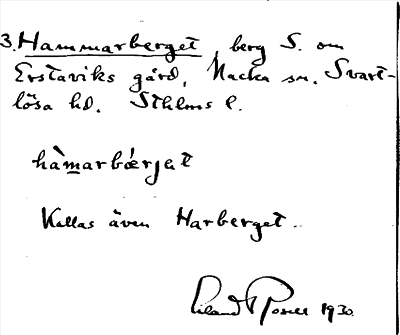 3. Hammarberget, berg S. om
Erstaviks gård, Nacka sn. Svart-
lösa hd. Sthlms l.
hàmarbǽrjet
Kallas även Harberget.
1930.